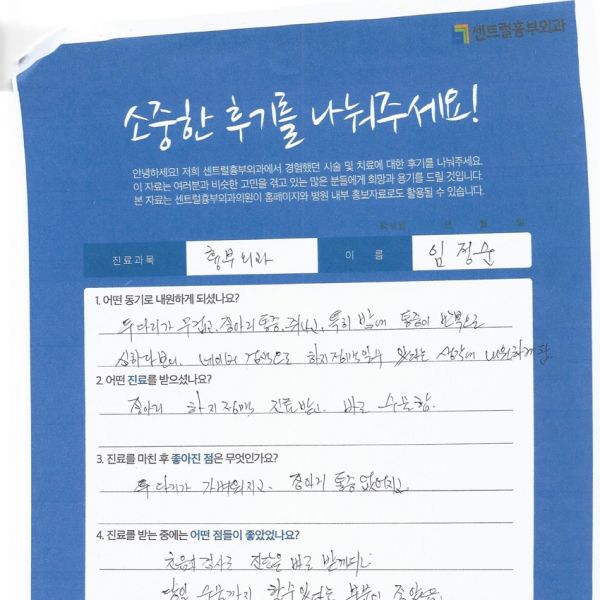 센트럴흉부외과
소중한 후기를 나눠주세요!
안녕하세요! 저희 센트럴흉부외과에서 경험했던 시술 및 치료에 대한 후기를 나눠주세요.
이 자료는 여러분과 비슷한 고민을 겪고 있는 많은 분들에게 희망과 용기를 드릴 것입니다.
본 자료는 센트럴흉부외과의원이 홈페이지와 병원 내부 홍보자료로도 활용될 수 있습니다.
작성일 년 월 일
진료과목 흉부외과 이 름 임정순
1. 어떤 동기로 내원하게 되셨나요?
두다리가 무겁고, 종아리 통증, 쥐나고, 특히 밤에 통증이 반복으로
심하다보니, 네이버 검색으로 하지정맥일수 있다는 생각에 내원하게 됨.
2. 어떤 진료를 받으셨나요?
종아리 하지정맥 진료받고, 바로 수술함.
3. 진료를 마친 후 좋아진 점은 무엇인가요?
두다리가 가벼워지고, 종아리 통증 없어지고
4. 진료를 받는 중에는 어떤 점들이 좋았었나요?
초음파 검사로 진단을 바로 받게되니
당일 수술까지 할수있었던 부분이 좋았음.